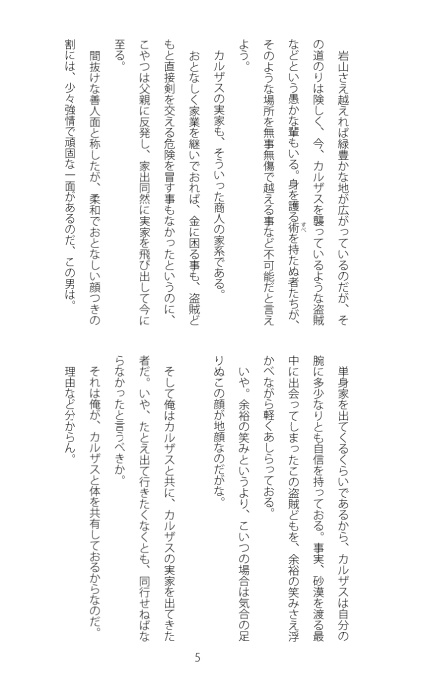 岩山さえ越えれば緑豊かな地が広がっているのだが、そ
の道のりは険しく、今、カルザスを襲っているような盗賊
などという愚かな輩もいる。身を護る術すべを持たぬ者たちが、
そのような場所を無事無傷で越える事など不可能だと言え
よう。
カルザスの実家も、そういった商人の家系である。
おとなしく家業を継いでおれば、金に困る事も、盗賊ど
もと直接剣を交える危険を冒す事もなかったというのに、
こやつは父親に反発し、家出同然に実家を飛び出して今に
至る。
間抜けな善人面と称したが、柔和でおとなしい顔つきの
割には、少々強情で頑固な一面があるのだ、この男は。
単身家を出てくるくらいであるから、カルザスは自分の
腕に多少なりとも自信を持っておる。事実、砂漠を渡る最
中に出会ってしまったこの盗賊どもを、余裕の笑みさえ浮
かべながら軽くあしらっておる。
いや。余裕の笑みというより、こいつの場合は気合の足
りぬこの顔が地顔なのだがな。
そして俺はカルザスと共に、カルザスの実家を出てきた
者だ。いや、たとえ出て行きたくなくとも、同行せねばな
らなかったと言うべきか。
それは俺が、カルザスと体を共有しておるからなのだ。
理由など分からん。
5